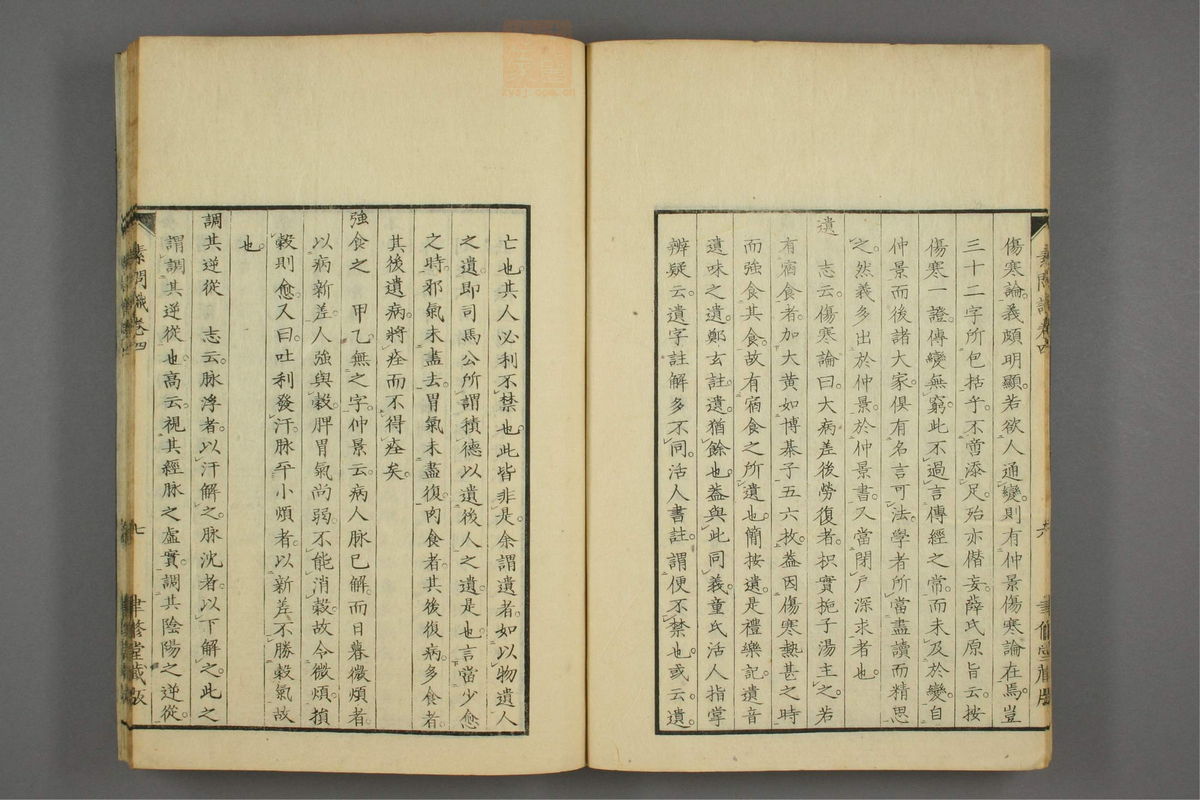 傷寒論義頗明顯。若欲人通變則有仲景傷寒論在焉。豈
三十二字所包括乎。不啻添足。殆亦僭妄。薛氏原旨云。按
傷寒一證。傳變無窮。此不過言傳經之常。而未及於變。自
仲景而後諸大家。俱有名言可法。學者所當盡讀而精思
之。然義多出於仲景。於仲景書。又當閉戶深求者也。
遺　志云。傷寒論曰。大病差後勞復者。枳實梔子湯主之。若
有宿食者。加大黃如博棊子五六枚。蓋因傷寒熱甚之時
而強食其食。故有宿食之所遺也。簡按遺。是禮樂記。遺音
遺味之遺。鄭玄註。遺。猶餘也。蓋與此同義。童氏活人指掌
辨疑云。遺字註解多不同。活人書註。謂便不禁也。或云。遺
素問識卷四
亡也。其人必利不禁也。此皆非是。余謂遺者。如以物遺人
之遺。即司馬公所謂積德以遺後人之遺是也。言當少愈
之時。邪氣未盡去。胃氣未盡復。肉食者。其後復病。多食者。
其後遺病。將痊而不得痊矣。
強食之　甲乙無之字。仲景云。病人脈已解。而日暮微煩者。
以病新差。人強與穀。脾胃氣尚弱。不能消穀。故令微煩。損
穀則愈。又曰。吐利發汗。脈平小煩者。以新差。不勝穀氣故
也。
調其逆從　志云。脈浮者。以汗解之。脈沈者。以下解之。此之
謂調其逆從也。高云。視其經脈之虛實。調其陰陽之逆從。
素問識卷四
七
聿修堂藏版